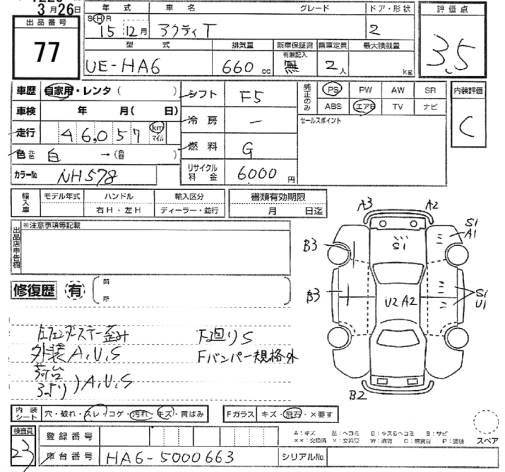 3月26日
出品番号
77
年式 車名 グレード ドア・形状
SHR
15年12月 アクティT 2
型式 排気量 新車保証書 乗車定員 最大積載量
有無記入
UE-HA6 660cc 無 2人 kg
評価点
3.5
車歴 自家用・レンタ( )
シフト F5
純正のみ
PS PW AW SR
ABS エアB TV ナビ
内装評価
C
車検 年 月( 日)
冷房 ー
セールスポイント
走行 46,057 km マイル
燃料 G
色 元色 白 →(自 )
カラーNo NH578
リサイクル料金 6000円
輸入車
モデル年式 ハンドル 輸入区分 書類有効期限
右H・左H ディーラー・並行 月 日迄
出品店申告欄
※注意事項等記載
修復歴 有
前
後
F廻りS
外装A,U,S
Fバンパー規格外
荷台
)A,U,S
A3 A2
S1
S1
A1
B3
B3
U2 A2
S1
U1
B2
内装シート
穴・破れ・スレ・コゲ・汚れ・キズ・黄ばみ
Fガラス キズ・飛石・×要す
スペア
検査員
23
登録番号
車台番号 HA6-5000663
シリアルNo.